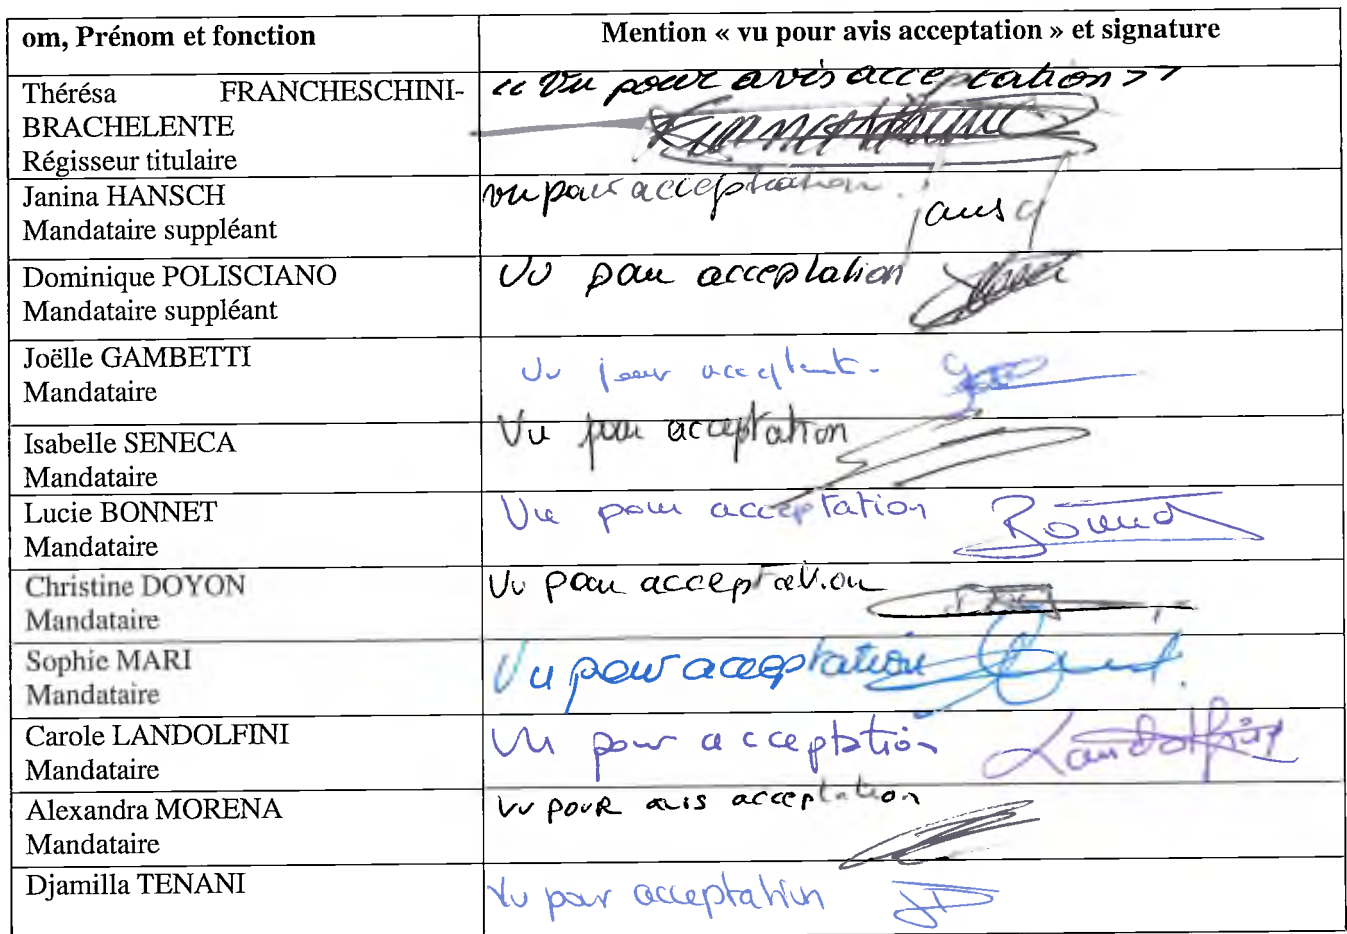 om, Prénom et fonction
Mention « vu pour avis acceptation » et signature
Thérésa FRANCHESCHINI-
BRACHELENTE
Régisseur titulaire
« Vu pour avis acceptation »
Janina HANSCH
Mandataire suppléant
vu pour acceptation.
Dominique POLISCIANO
Mandataire suppléant
Vu pour acceptation
Joëlle GAMBETTI
Mandataire
Vu pour
Isabelle SENECA
Mandataire
Vu pour acceptation
Lucie BONNET
Mandataire
Vu pour acceptation
Bonnet
Christine DOYON
Mandataire
Vu pour acceptation
Sophie MARI
Mandataire
Vu pour acceptation
Carole LANDOLFINI
Mandataire
Vu pour acceptation
Landolfini
Alexandra MORENA
Mandataire
Vu pour avis acceptation
Djamilla TENANI
Vu pour acceptation